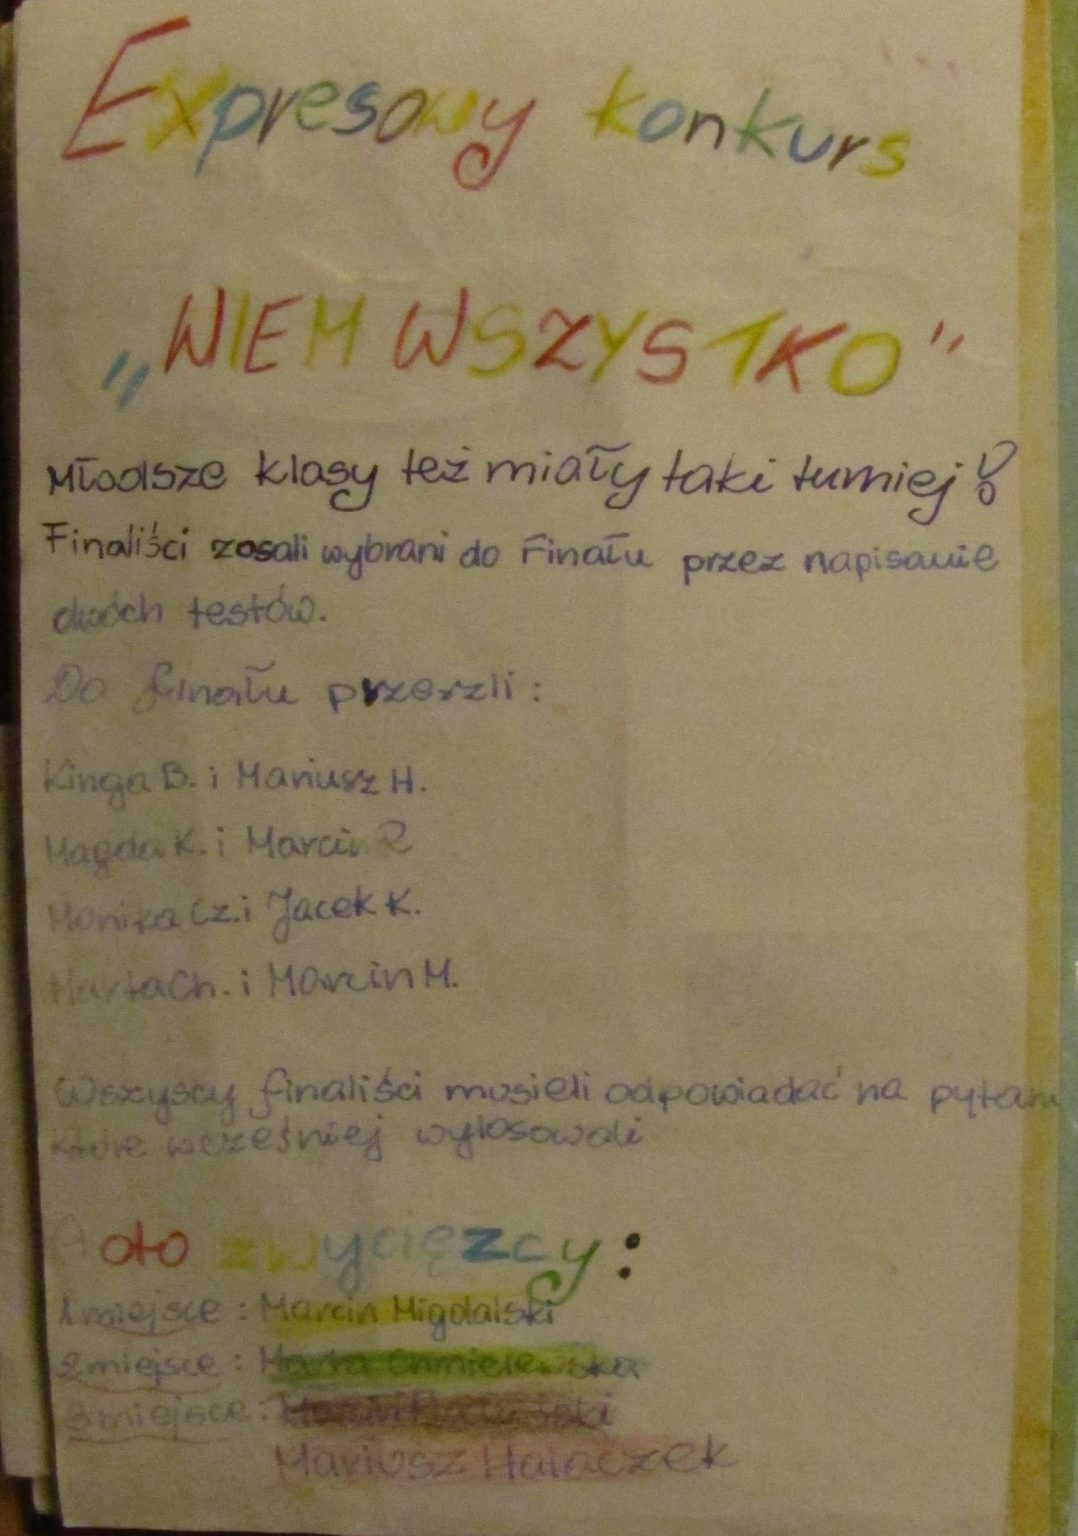 Expresowy konkurs
„WIEM WSZYSTKO"
Młodsze klasy też miały taki turniej!
Finaliści zosali wybrani do Finału przez napisanie
dwóch testów.
Do finału przerzli:
Kinga B. i Mariusz H.
Magda K. i Marcin R
Monika Cz. i Jacek K.
Marta Ch. i Marcin M.
Wszyscy finaliści musieli odpowiadać na pytan
które wcześniej wylosowali
A oto zwycięzcy:
1 miejsce: Marcin Migdalski
2 miejsce: Marta Chmielewska
3 miejsce: Marcin
Mariusz Hałaczek